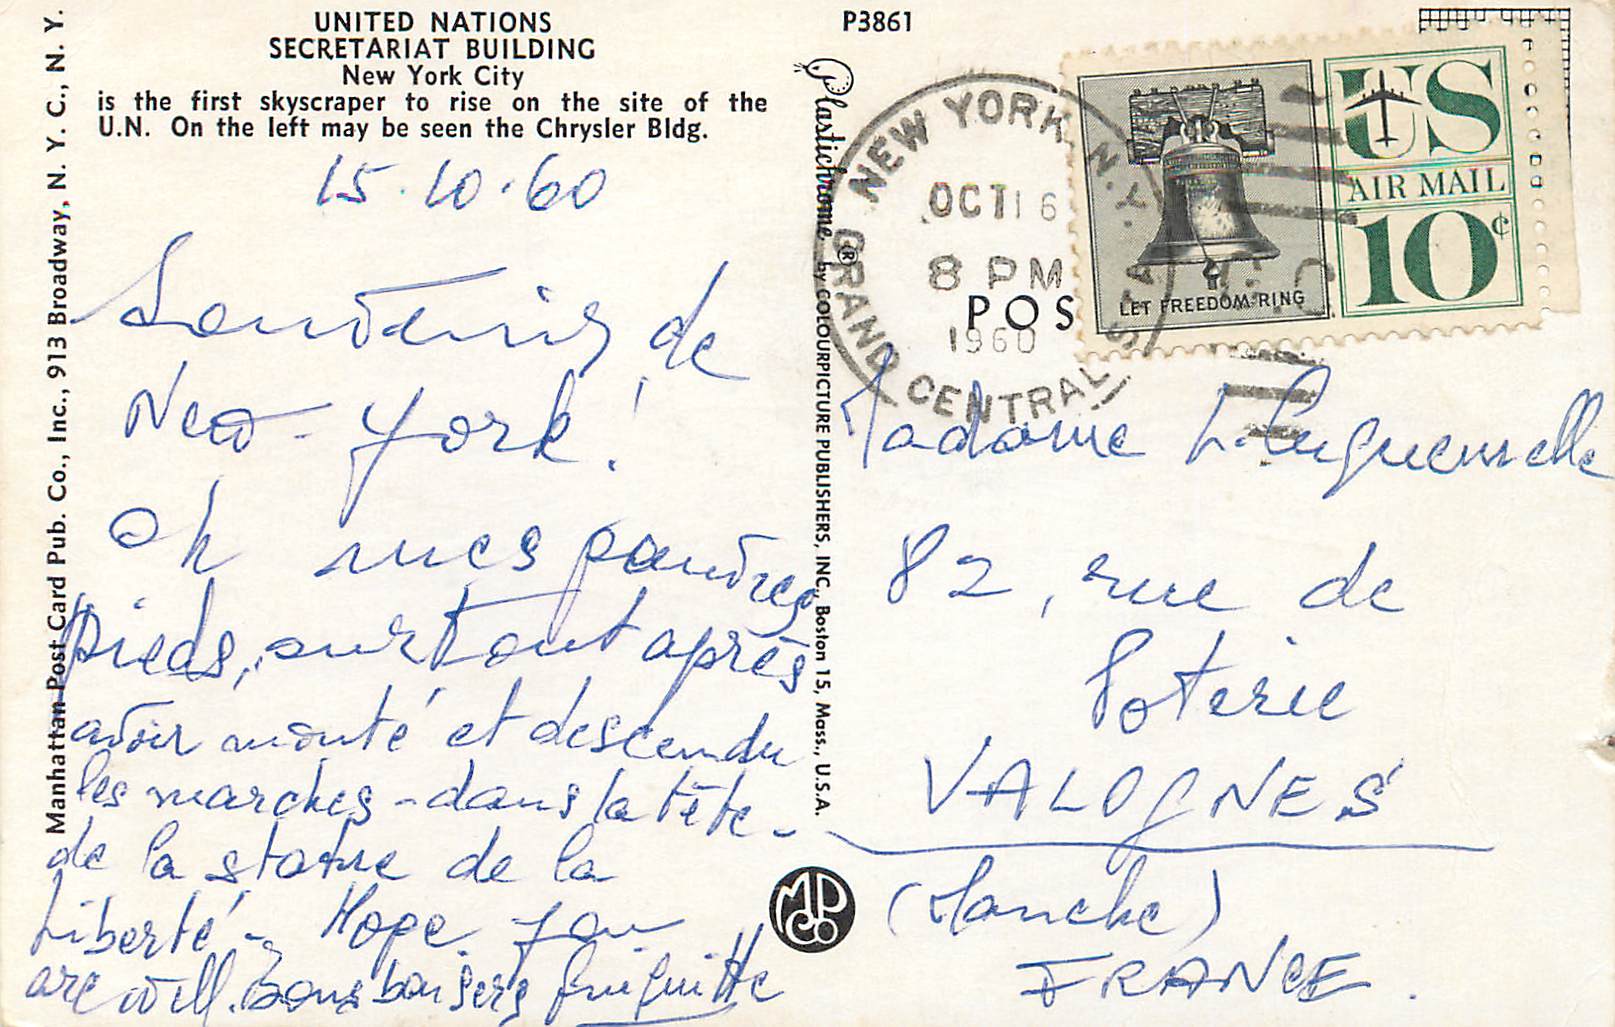 UNITED NATIONS
SECRETARIAT BUILDING
New York City
is the first skyscraper to rise on the site of the
U.N. On the left may be seen the Chrysler Bldg.
Manhattan Post Card Pub. Co., Inc., 913 Broadway, N. Y. C., N. Y.
15.10.60
Souvenirs de
New-York!
Oh mes pauvres
pieds, surtout après
avoir monté et descendu
les marches - dans la tête -
de la statue de la
Liberté - Hope you
are well. Bons baisers
P3861
Plastichrome ® by COLOURPICTURE PUBLISHERS, INC., Boston 15, Mass., U.S.A.
POS
NEW YORK, N.Y.
OCT 16
8 PM
1960
GRAND CENTRAL STA.
LET FREEDOM RING
US
AIR MAIL
10¢
Madame L.
82, rue de
Poterie
VALOGNES
(Manche)
FRANCE.
MPCo